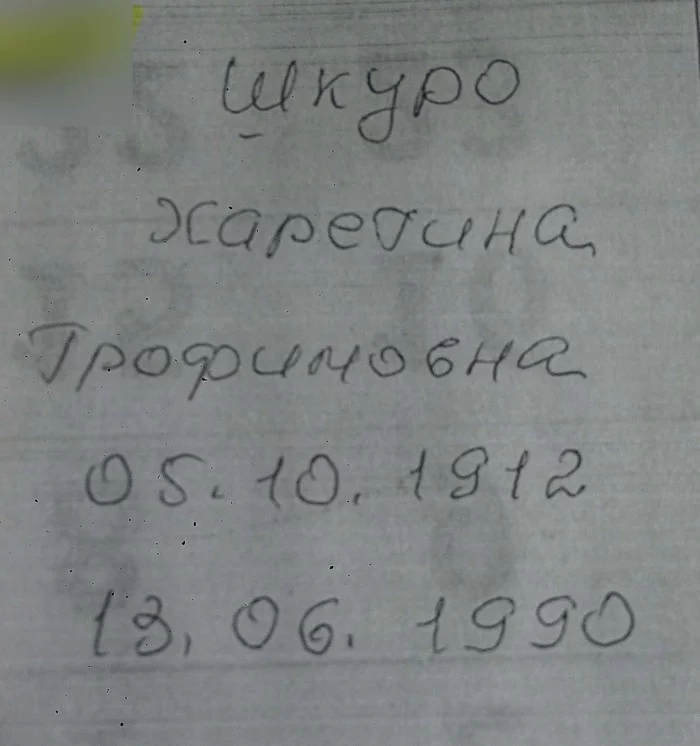 Шкуро
Харетина
Трофимовна
05.10.1912
13.06.1990